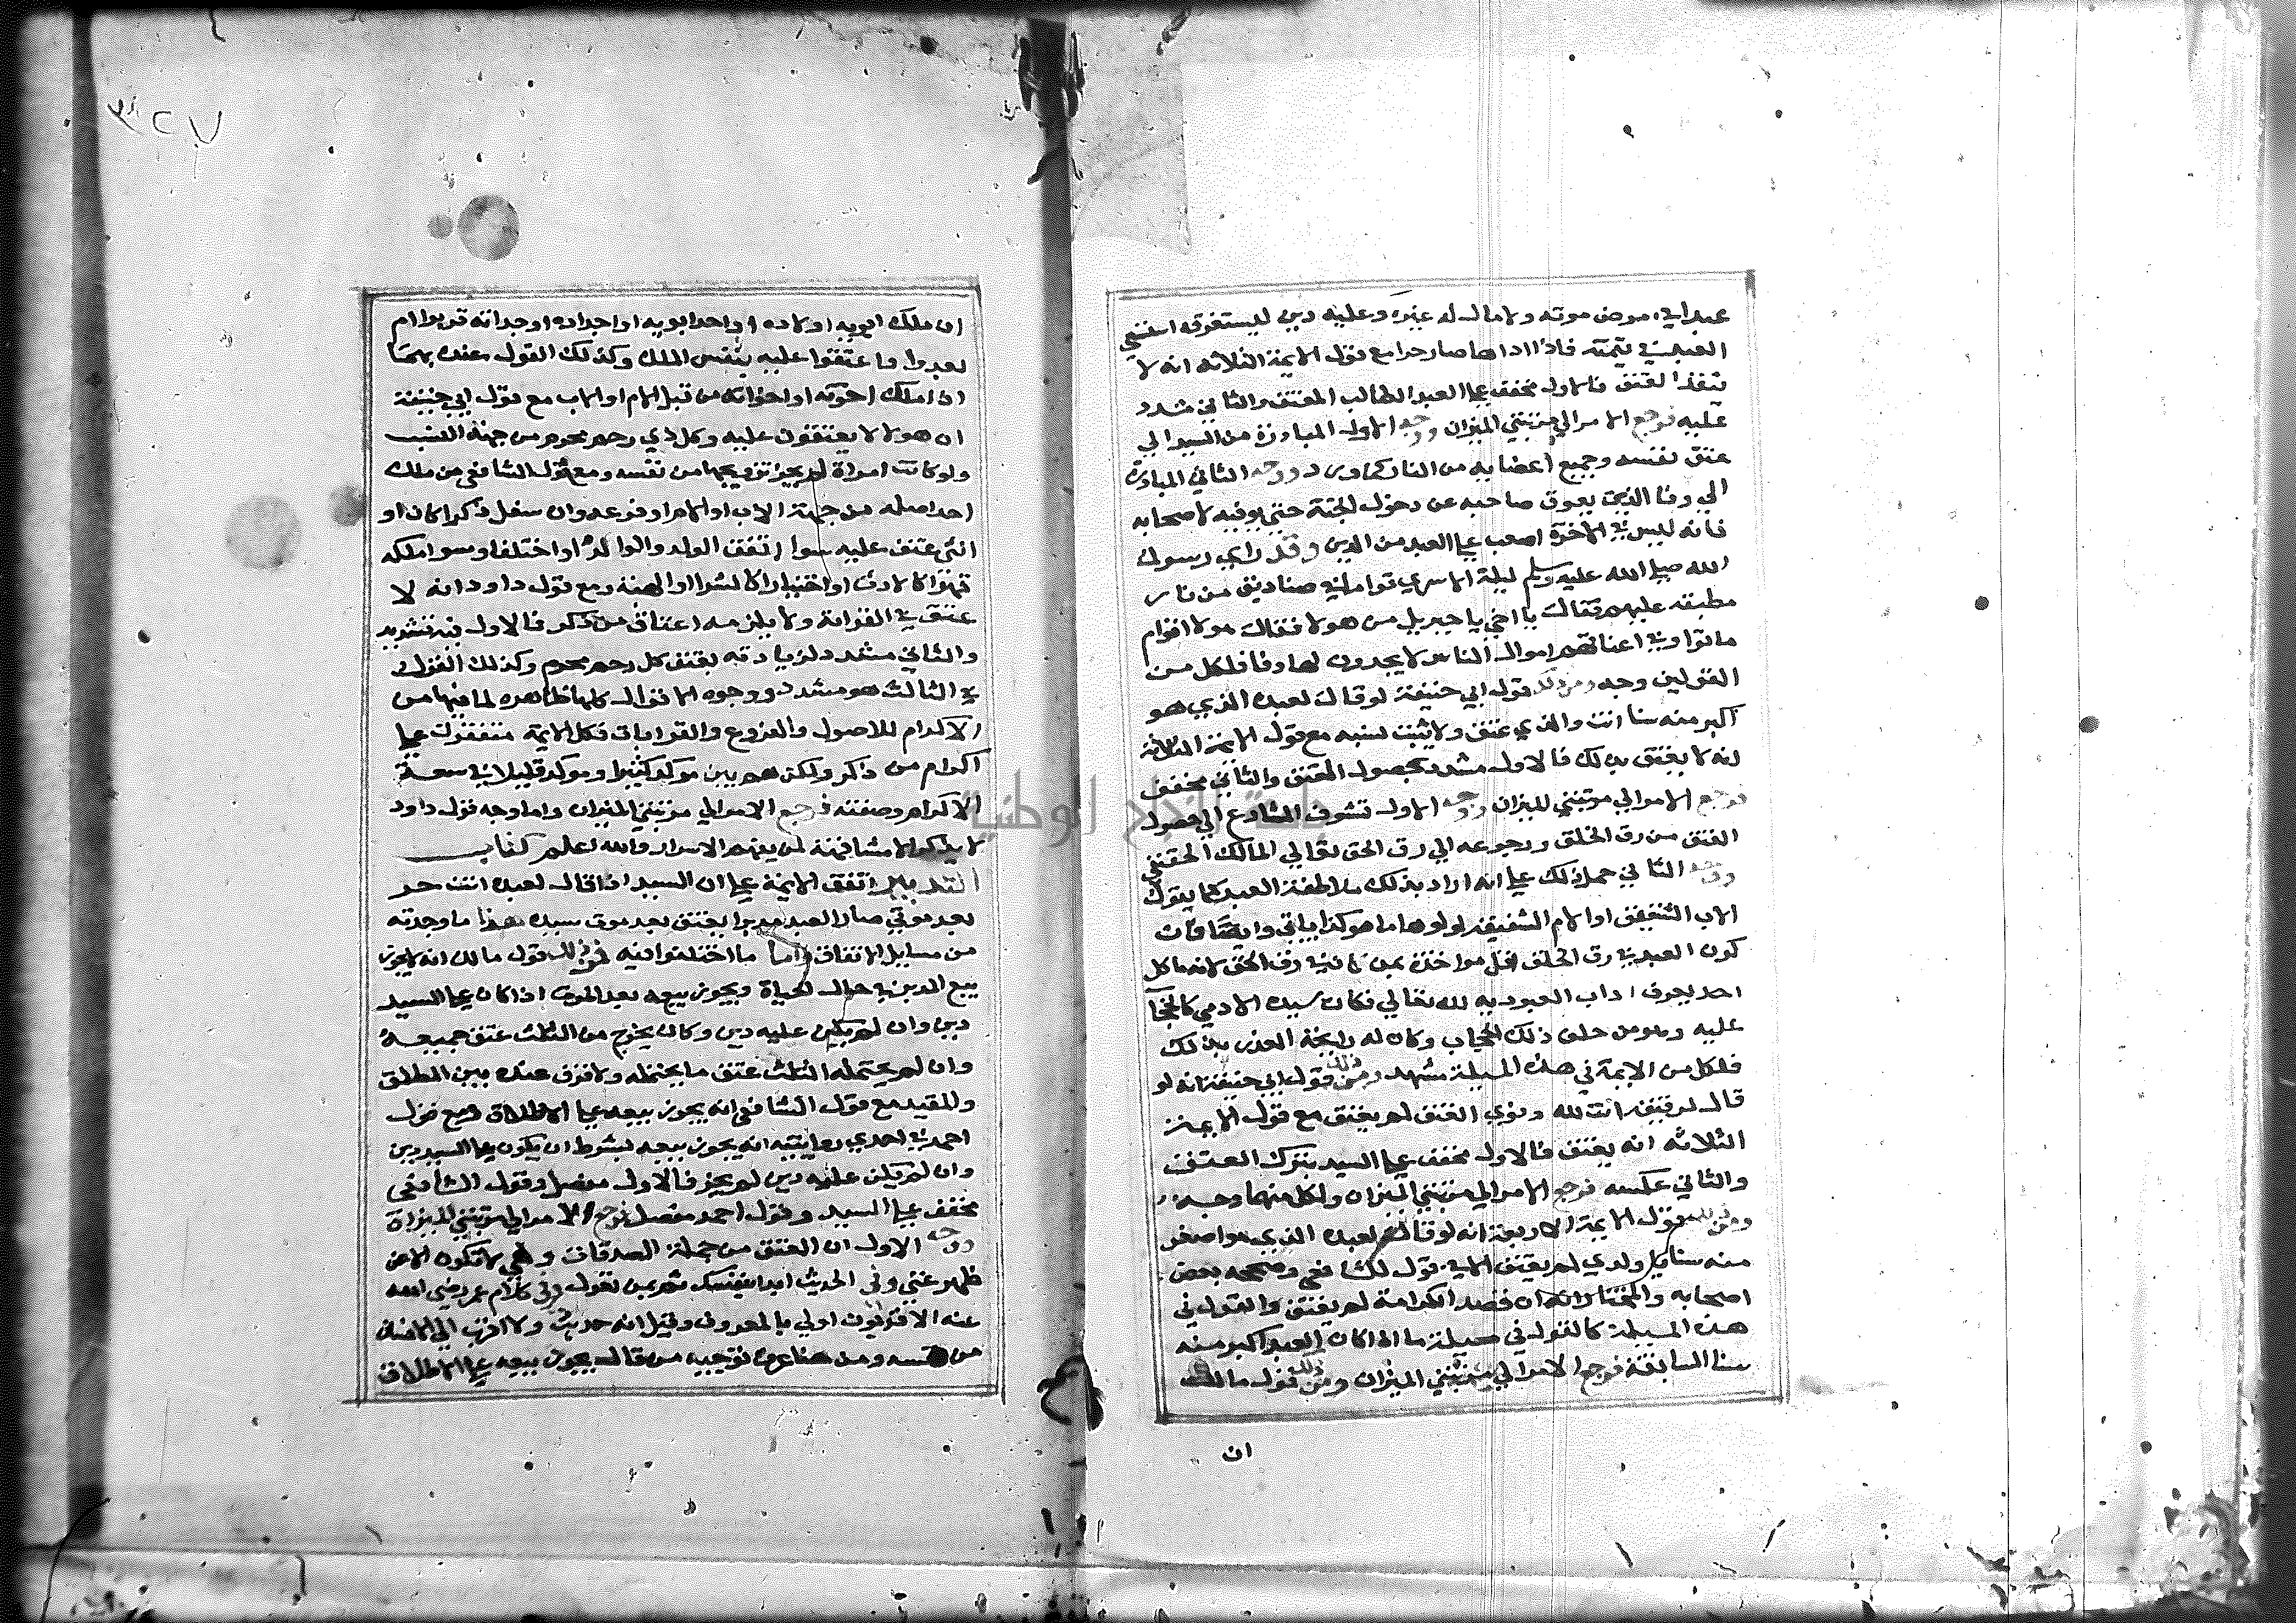 عبدا في مرض موته ولا مال له غيره وعليه دين يستغرقه استسعى
العبد في قيمته فاذا اداها صار حرا مع قول الايمة الثلاثة انه لا
ينفذ العتق فالاول مخفف على العبد الطالب للعتق والثاني مشدد
عليه فرجع الامر الى مرتبتي الميزان ووجه الاول المبادرة من السيد الى
عتق نفسه وجميع اعضايه من النار كما ورد ووجه الثاني المبادرة
الى وفا الدين يعوق صاحبه عن دخول الجنة حتى يوفيه لاصحابه
فانه ليس في الاخرة اصعب على العبد من الدين وقد راى رسول
الله صلى الله عليه وسلم ليلة الاسرى قواما في صناديق من نار
مطبقه عليهم فقال يا اخي يا جبريل من هولا فقال هولا اقوام
ماتوا وفي اعناقهم اموال الناس لا يجدون لها وفا فلكل من
القولين وجه ومن ذلك قول ابي حنيفة لو قال لعبده الذي هو
اكبر منه سنا انت ولدي عتق ولا يثبت نسبه مع قول الايمة الثلاثة
انه لا يعتق بذلك فالاول مشدد بحصول العتق والثاني مخفف
فرجع الامر الى مرتبتي الميزان ووجه الاول تشوف الشارع الى حصول
العتق من رق الخلق ورجوعه الى رق الحق تعالى المالك الحقيقي
ووجه الثاني حمل ذلك على انه اراد بذلك ملاطفة العبد كما يقول
الاب الشفيق او الام الشفيقة لولدها ما هو كذا ياباتي وايضا فان
كون العبد في رق الخلق اقل مواخذة ممن كان في رق الحق لانه ما كل
احد يعرف اداب العبودية لله تعالى فكان سيده الادمي كالحجاب
عليه وهو من خلف ذلك الحجاب وكان له رايحة العذر بذلك
فلكل من الايمة في هذه المسيلة مشهد ومن ذلك قول ابي حنيفة انه لو
قال لرقيقه انت لله ونوى العتق لم يعتق مع قول الايمة
الثلاثه انه يعتق فالاول مخفف على السيد بترك العتق
والثاني عكسه فرجع الامر الى مرتبتي الميزان ولكل منهما وجه
ومن ذلك قول الايمة الاربعة انه لو قال لعبده الذي هو اصغر
منه سنا هذا ولدي لم يعتق الا في قول للشافعي وصححه بعض
اصحابه والمختار انه ان قصد الكرامة لم يعتق والقول في
هذه المسيلة كالقول في مسيلة ما اذا كان العبد اكبر منه
سنا السابقة فرجع الامر الى مرتبتي الميزان ومن ذلك قول مالك
ان
٣٢٧
ان ملك ابويه اولاده او احد ابويه او اجداده او جداته قربوا ام
بعدوا فاعتقوا عليه بنفس الملك وكذلك القول عنده بهما
اذا ملك اخوته او اخواته من قبل الام او الاب مع قول ابي حنيفة
ان هولا لا يعتقون عليه وكل ذي رحم محرم من جهة النسب
ولو كانت امراة لم يجز تزويجها من نفسه ومع قول الشافعي من ملك
احد اصله من جهة الاب او الام او فرعه وان سفل ذكرا كان او
انثى عتق عليه سوا اتفق الولد والوالد او اختلفا وسوا ملكه
قهرا كالارث او اختيارا كالشرا والهبة ومع قول داود انه لا
عتق في القرابة ولا يلزمه اعتاق من ذكر فالاول فيه تشديد
والثاني مشدد لزيادته بعتق كل رحم محرم وكذلك القول
في الثالث هو مشدد ووجوه الاقوال كلها ظاهره لما فيها من
الاكرام للاصول والفروع والقرابات فكل الايمة متفقون على
اكرام من ذكر ولكن هم بين موكد كثيرا وموكد قليلا في سعة
الاكرام وصفته فرجع الامر الى مرتبتي الميزان واما وجه قول داود
لا يذكر الا مشافهة لمن يفهم الاسرار والله اعلم كتاب
التدبير اتفق الايمة على ان السيد اذا قال لعبده انت حر
بعد موتي صار العبد مدبرا يعتق بعد موت سيده هذا ما وجدته
من مسايل الاتفاق واما ما اختلفوا فيه فمن ذلك قول مالك انه لا يجوز
بيع المدبر في حال الحياة ويجوز بيعه بعد الموت اذا كان على السيد
دين وان لم يكن عليه دين وكان يخرج من الثلث عتق جميعه
وان لم يحتمله الثلث عتق ما يحتمله ولا فرق عنده بين المطلق
والمقيد مع قول الشافعي انه يجوز بيعه على الاطلاق ومع قول
احمد في احدى روايتيه انه يجوز بيعه بشرط ان يكون على السيد دين
وان لم يكن عليه دين لم يجز فالاول مفصل وقول الشافعي
مخفف على السيد وقول احمد مفصل فرجع الامر الى مرتبتي الميزان
ووجه الاول ان العتق من جملة الصدقات وهي لا تكون الا عن
ظهر غنى وفي الحديث ابدا بنفسك ثم بمن تعول وفي كلام عمر رضي الله
عنه الاقربون اولى بالمعروف وقيل انه حديث ولا اقرب الى الانسان
من نفسه ومن هنا عرف توجيه من قال يجوز بيعه على الاطلاق